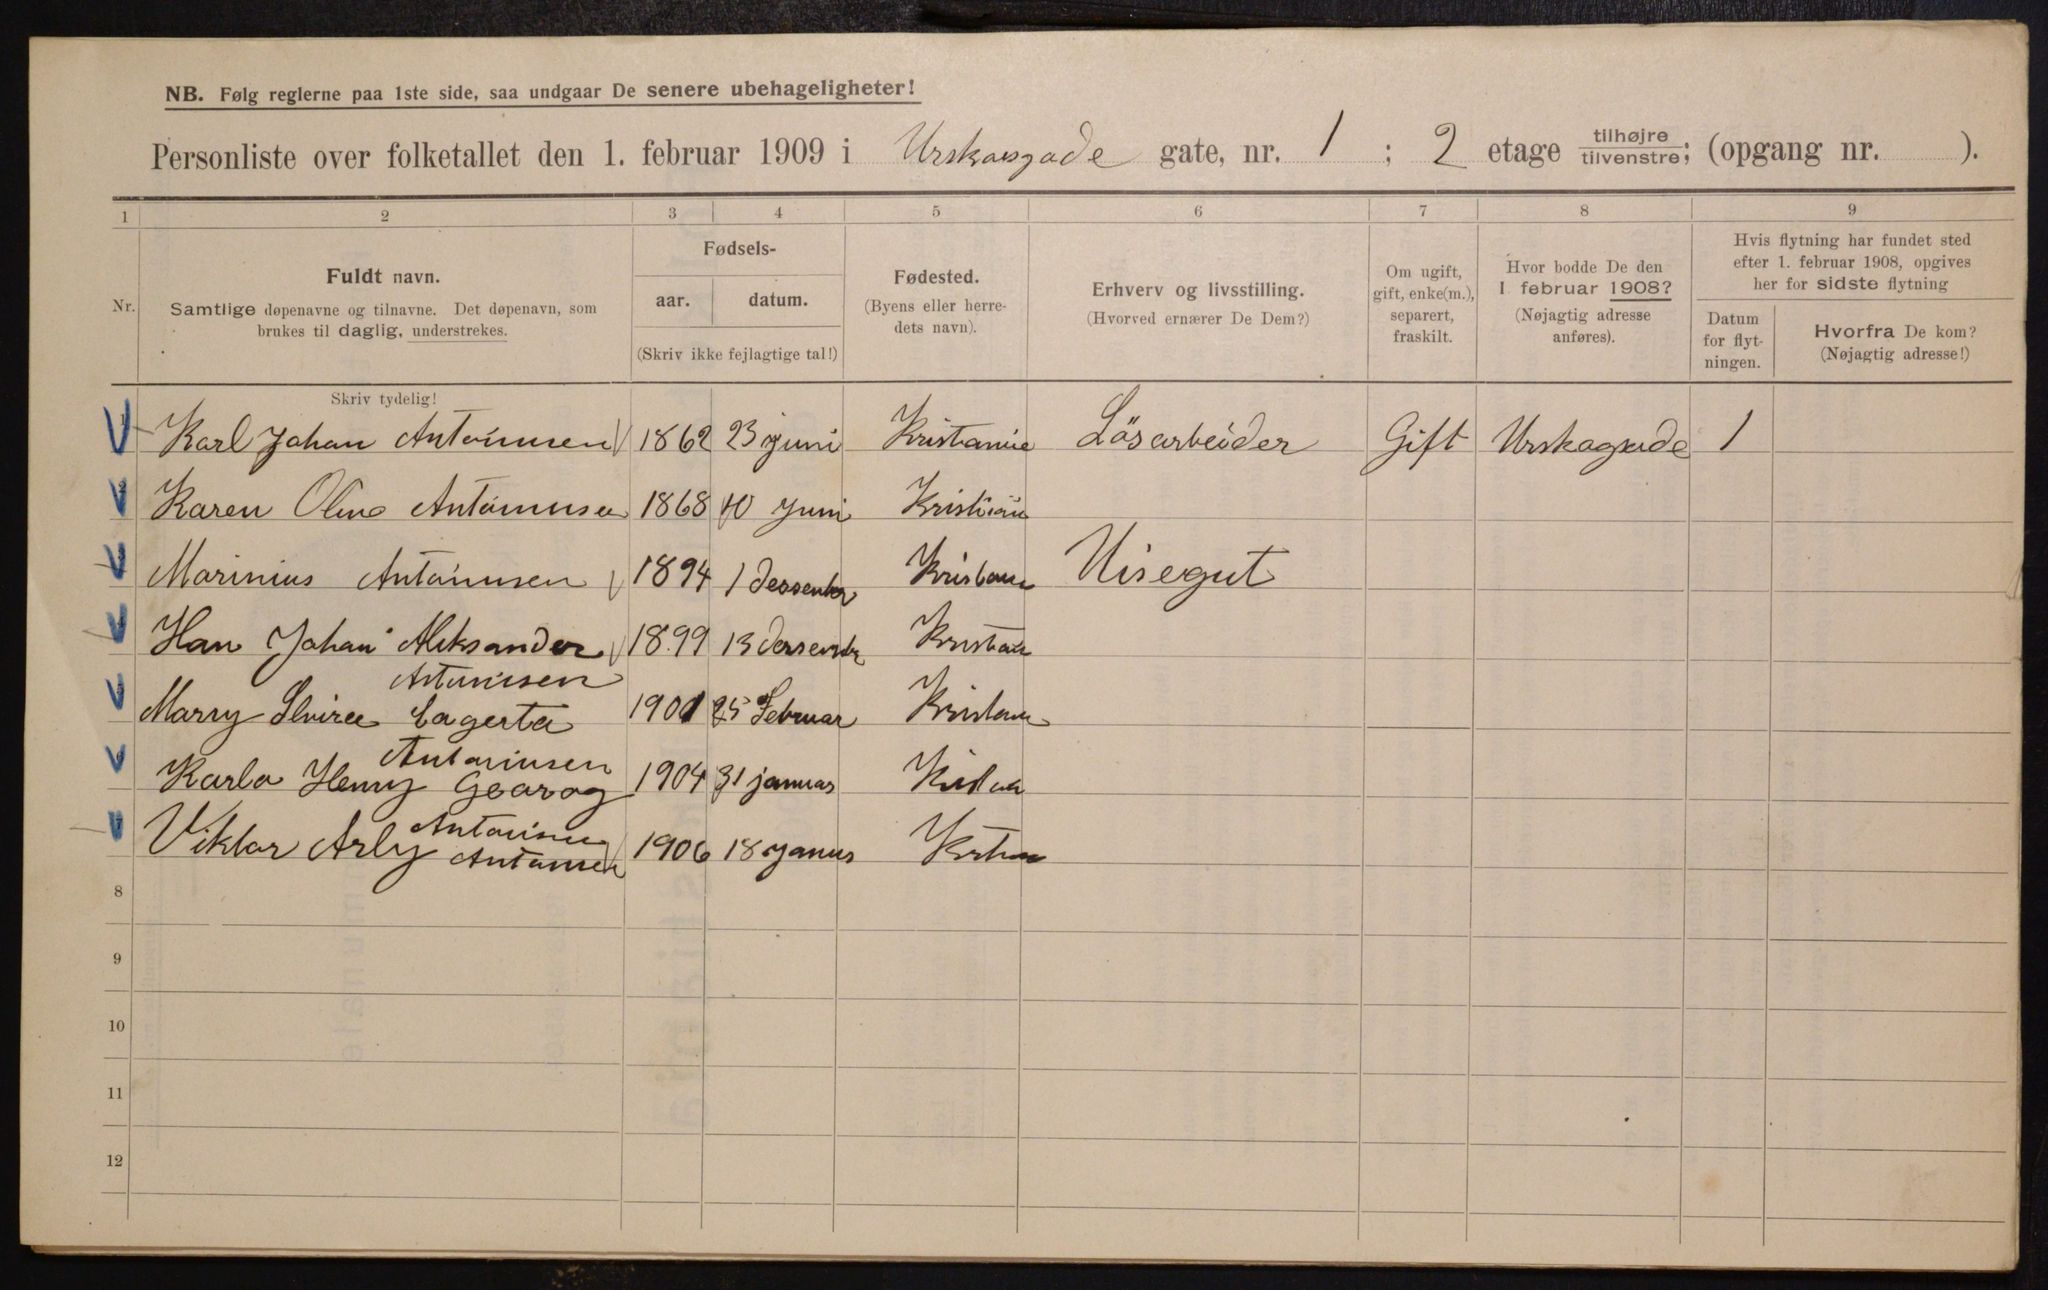 NB. Følg reglerne paa 1ste side, saa undgaar De senere ubehageligheter!
Personliste over folketallet den 1. februar 1909 i Urskogsgade gate, nr. 1 ; 2 etage tilhøjre tilvenstre; (opgang nr. ).
1 2 3 4 5 6 7 8 9
Nr.
Fuldt navn.
Samtlige døpenavne og tilnavne. Det døpenavn, som
brukes til daglig, understrekes.
Fødsels-
aar. datum.
(Skriv ikke fejlagtige tal!)
Fødested.
(Byens eller herre-
dets navn).
Erhverv og livsstilling.
(Hvorved ernærer De Dem?)
Om ugift,
gift, enke(m.),
separert,
fraskilt.
Hvor bodde De den
1 februar 1908?
(Nøjagtig adresse
anføres).
Hvis flytning har fundet sted
efter 1. februar 1908, opgives
her for sidste flytning
Datum
for flyt-
ningen.
Hvorfra De kom?
(Nøjagtig adresse!)
Skriv tydelig!
Karl Johan Antonnsen 1862 23 juni Kristianie Lösarbeider Gift Urskogade 1
Karen Oline Antonnusen 1868 10 Juni Kristian
Marinius Antonnsen 1894 1 dessenber Kristian Visegut
Han Johan Aleksander 1899 13 dessenber Kristian
Antonisen
Marry Elvira Lagerta 1901 25 Februar Kristian
Antoninsen
Karlo Henry Georog 1904 31 januar
Antonisen
Viktor Arly Antonsen 1906 18 Janus
8
9
10
11
12